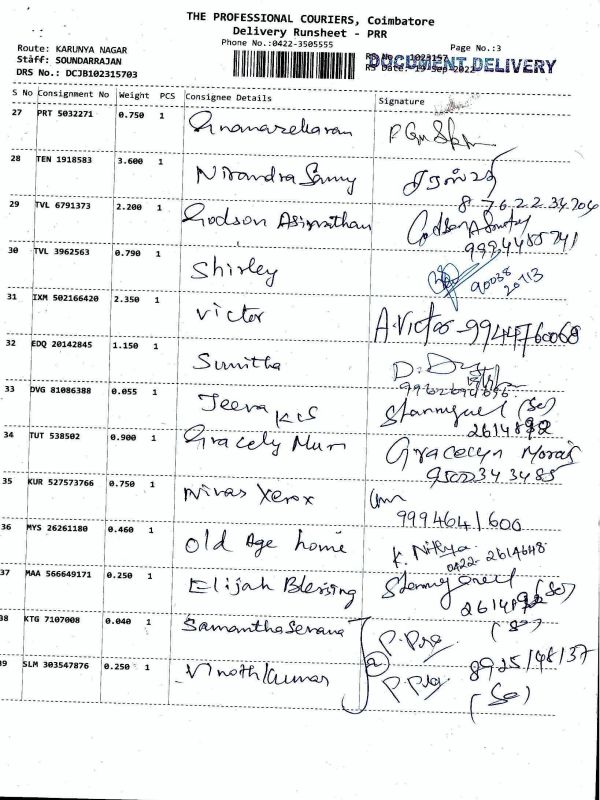 THE PROFESSIONAL COURIERS, Coimbatore
Delivery Runsheet - PRR
Phone No.:0422-3505555
Page No.:3
Route: KARUNYA NAGAR
Staff: SOUNDARRAJAN
DRS No.: DCJB102315703
RS No.: 1023157
RS Date: 19-Sep-2022
DOCUMENT DELIVERY
S No Consignment No Weight PCS Consignee Details Signature
27 PRT 5032271 0.750 1 Gnanasekaran
28 TEN 1918583 3.600 1 Nirandra Samy
8 7 6 2 2 34 704
29 TVL 6791373 2.200 1 Godson
9994485741
30 TVL 3962563 0.790 1 Shirley 90038
20713
31 IXM 502166420 2.350 1 Victor A.Victor - 9944760068
32 EDQ 20142845 1.150 1 Sumitha
33 DVG 81086388 0.055 1 Jeeva KCS (So)
2614892
34 TUT 538502 0.900 1 Gracely Muri Gracelyn Morais
9500343485
35 KUR 527573766 0.750 1 Nivas Xerox
9994641600
36 MYS 26261180 0.460 1 Old Age home K. Nithya
0422-2614648
37 MAA 566649171 0.250 1 Elijah Blessing (So)
38 KTG 7107008 0.040 1 Samantha P.Pra (So)
39 SLM 303547876 0.250 1 Vinothkumar P.Pra 8925148137
(So)